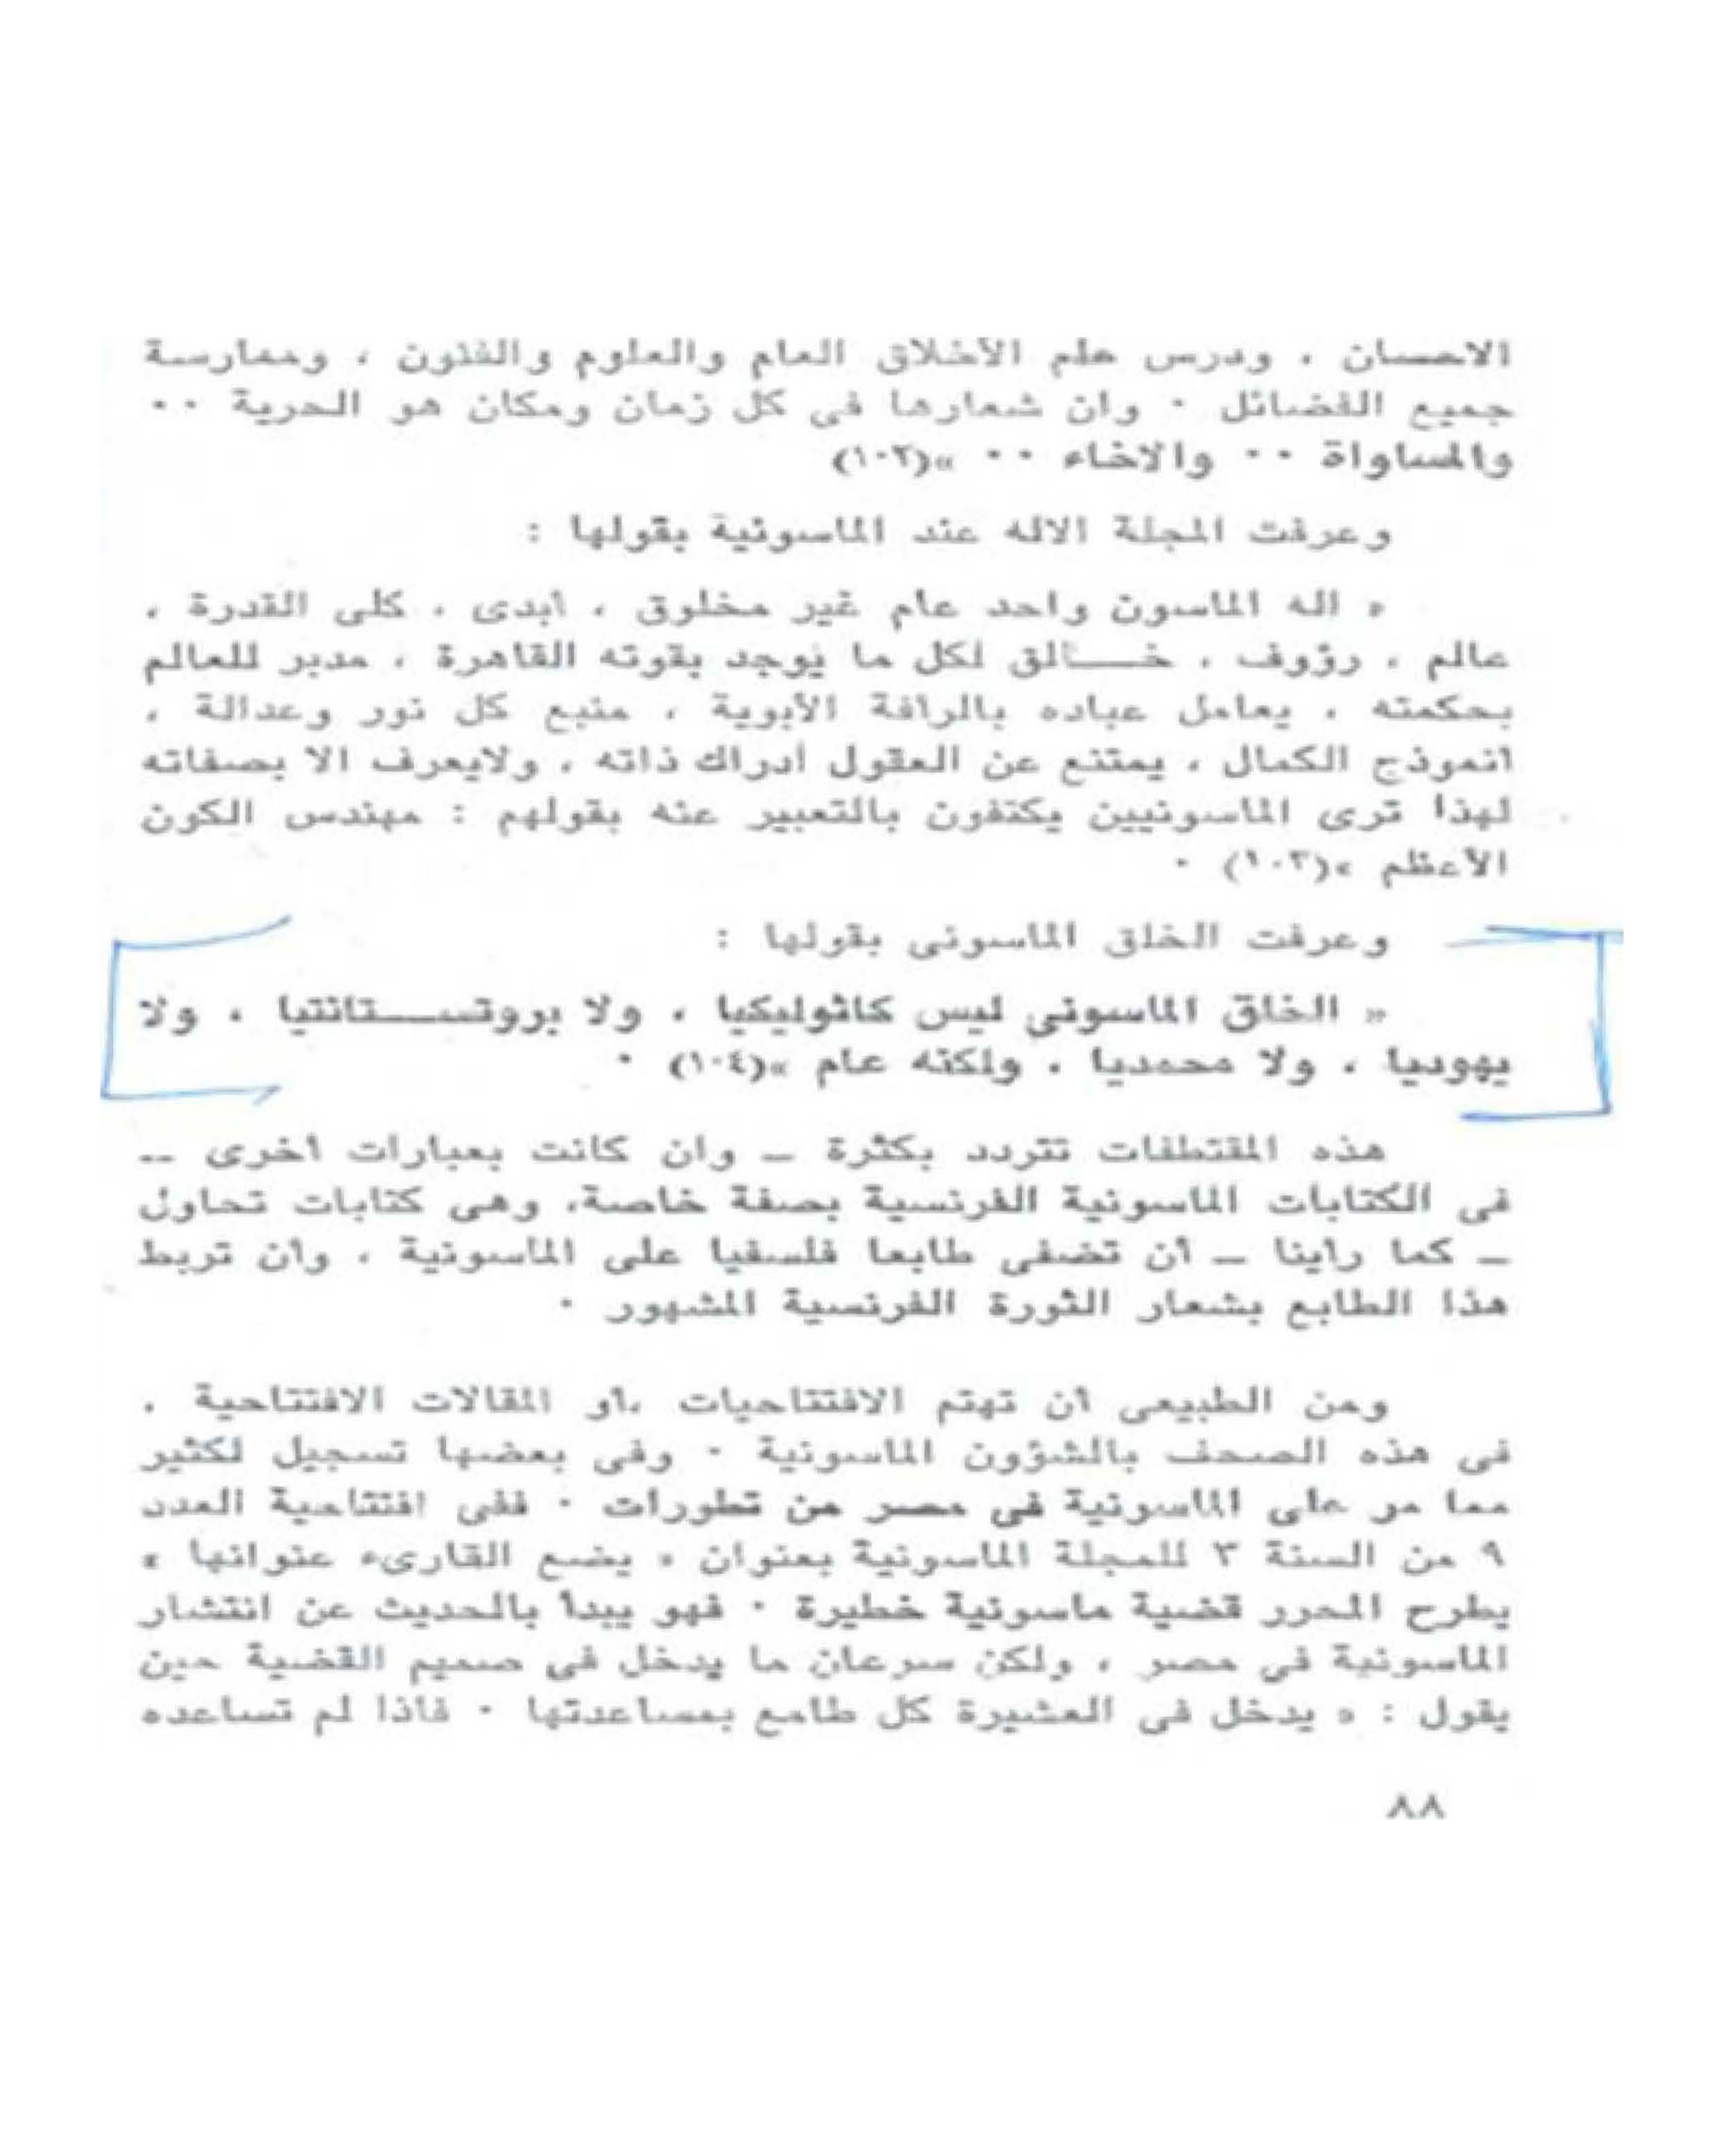 الاحسان ، ودرس علم الأخلاق العام والعلوم والفنون ، وممارسة
جميع الفضائل ٠ وان شعارها فى كل زمان ومكان هو الحرية ٠٠
والمساواة ٠٠ والاخاء ٠٠ »(١٠٢)
وعرفت المجلة الاله عند الماسونية بقولها :
« اله الماسون واحد عام غير مخلوق ، أبدى ، كلى القدرة ،
عالم ، رؤوف ، خـــالق لكل ما يوجد بقوته القاهرة ، مدبر للعالم
بحكمته ، يعامل عباده بالرافة الأبوية ، منبع كل نور وعدالة ،
انموذج الكمال ، يمتنع عن العقول ادراك ذاته ، ولايعرف الا بصفاته
لهذا ترى الماسونيين يكتفون بالتعبير عنه بقولهم : مهندس الكون
الأعظم »(١٠٣) ٠
وعرفت الخلق الماسونى بقولها :
« الخلق الماسونى ليس كاثوليكيا ، ولا بروتســـتانتيا ، ولا
يهوديا ، ولا محمديا ، ولكنه عام »(١٠٤) ٠
هذه المقتطفات تتردد بكثرة — وان كانت بعبارات أخرى —
فى الكتابات الماسونية الفرنسية بصفة خاصة، وهى كتابات تحاول
— كما راينا — أن تضفى طابعا فلسفيا على الماسونية ، وأن تربط
هذا الطابع بشعار الثورة الفرنسية المشهور ٠
ومن الطبيعى أن تهتم الافتتاحيات ،أو المقالات الافتتاحية ،
فى هذه الصحف بالشؤون الماسونية ٠ وفى بعضها تسجيل لكثير
مما مر على الماسونية فى مصر من تطورات ٠ ففى افتتاحية العدد
٩ من السنة ٣ للمجلة الماسونية بعنوان « يضع القارىء عنوانها »
يطرح المحرر قضية ماسونية خطيرة ٠ فهو يبدأ بالحديث عن انتشار
الماسونية فى مصر ، ولكن سرعان ما يدخل فى صميم القضية حين
يقول : « يدخل فى العشيرة كل طامع بمساعدتها ٠ فاذا لم تساعده
٨٨